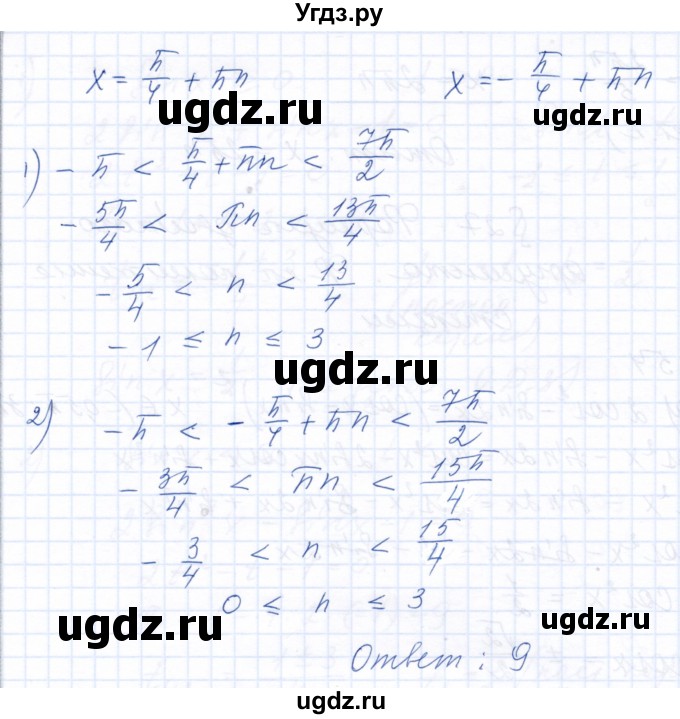 Угдз.ру
x = π/4 + πn        x = - π/4 + πn
ugdz.ru ugdz.ru
1) - π < π/4 + πn < 7π/2
- 5π/4 < πn < 13π/4
- 5/4 < n < 13/4
ugdz.ru ugdz.ru
- 1 ≤ n ≤ 3
2) - π < - π/4 + πn < 7π/2
- 3π/4 < πn < 15π/4
ugdz.ru
- 3/4 < n < 15/4
0 ≤ n ≤ 3
ugdz.ru ugdz.ru
Ответ : 9
ugdz.ru